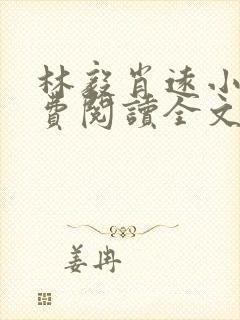 林毅肖遠小
費閱讀全文
姜冉